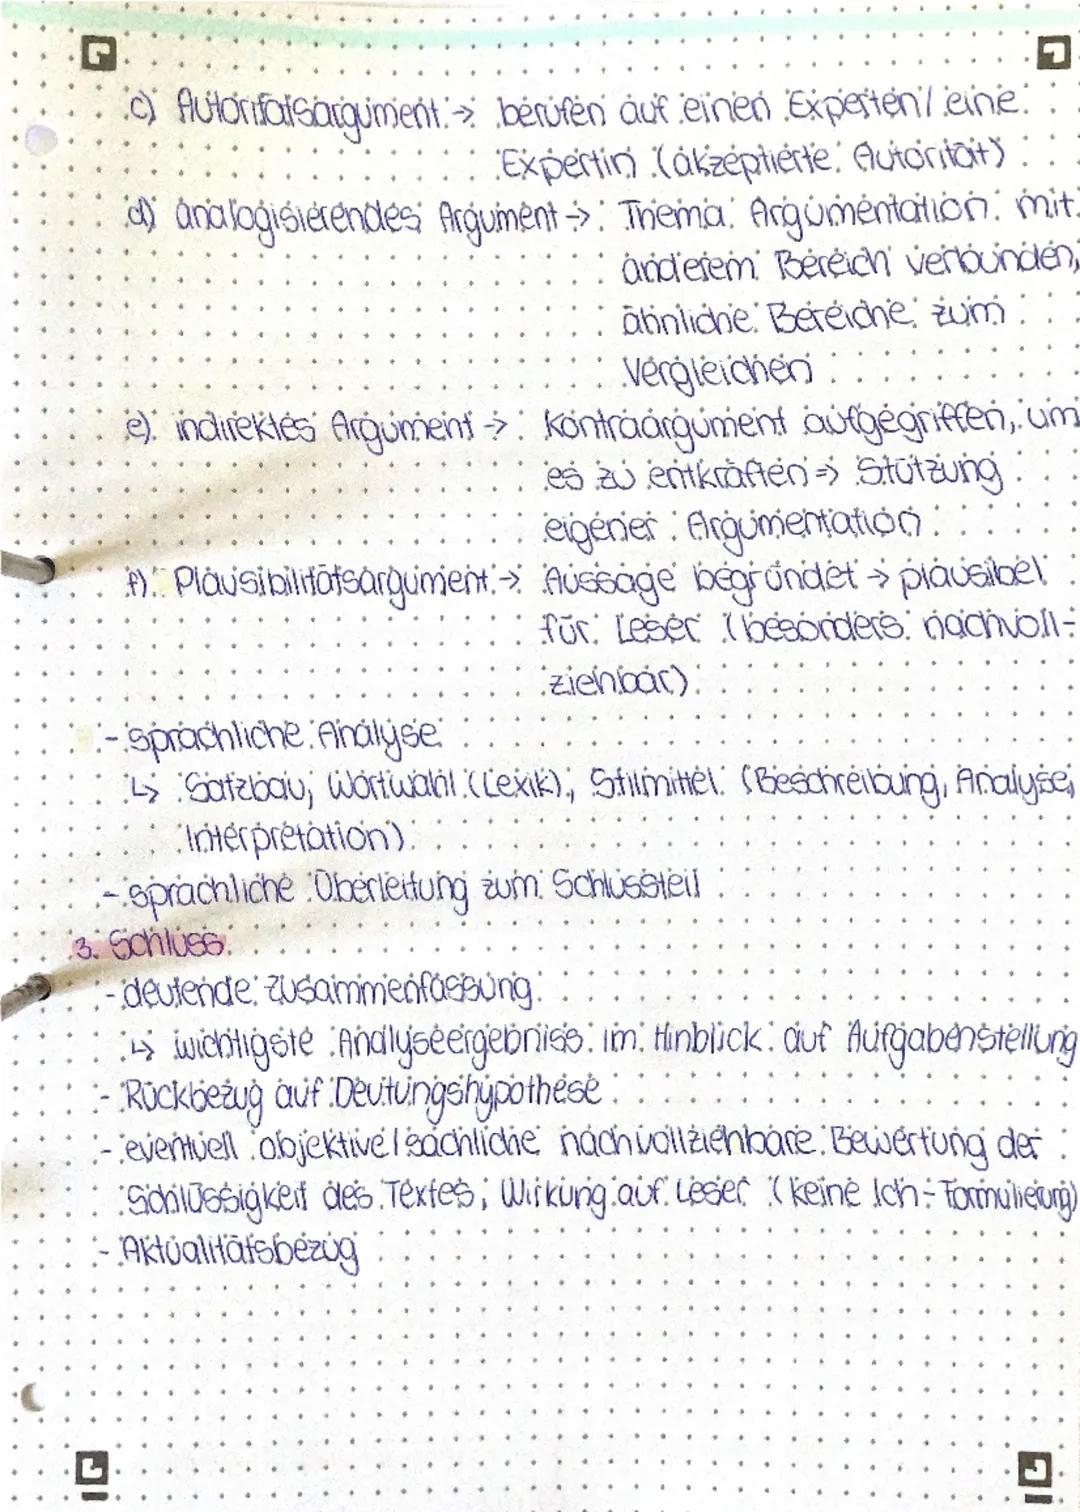 c) Autoritätsargument → berufen auf einen Experten/eine
Expertin (akzeptierte Autorität)
d) analogisierendes Argument → Thema Argumentation mit
anderem Bereich verbunden,
ähnliche Bereiche zum
Vergleichen
e) indirektes Argument → Kontraargument aufgegriffen, um
es zu entkräften ⇒ Stützung
eigener Argumentation
f) Plausibilitätsargument → Aussage begründet → plausibel
für Leser (besonders nachvoll-
ziehbar)
- sprachliche Analyse
↳ Satzbau, Wortwahl (Lexik), Stilmittel (Beschreibung, Analyse,
Interpretation)
- sprachliche Überleitung zum Schlussteil
3. Schluss
- deutende Zusammenfassung
↳ wichtigste Analyseergebniss im Hinblick auf Aufgabenstellung
- Rückbezug auf Deutungshypothese
- eventuell objektive/sachliche nachvollziehbare Bewertung der
Schlüssigkeit des Textes, Wirkung auf Leser (keine Ich-Formulierung)
- Aktualitätsbezug